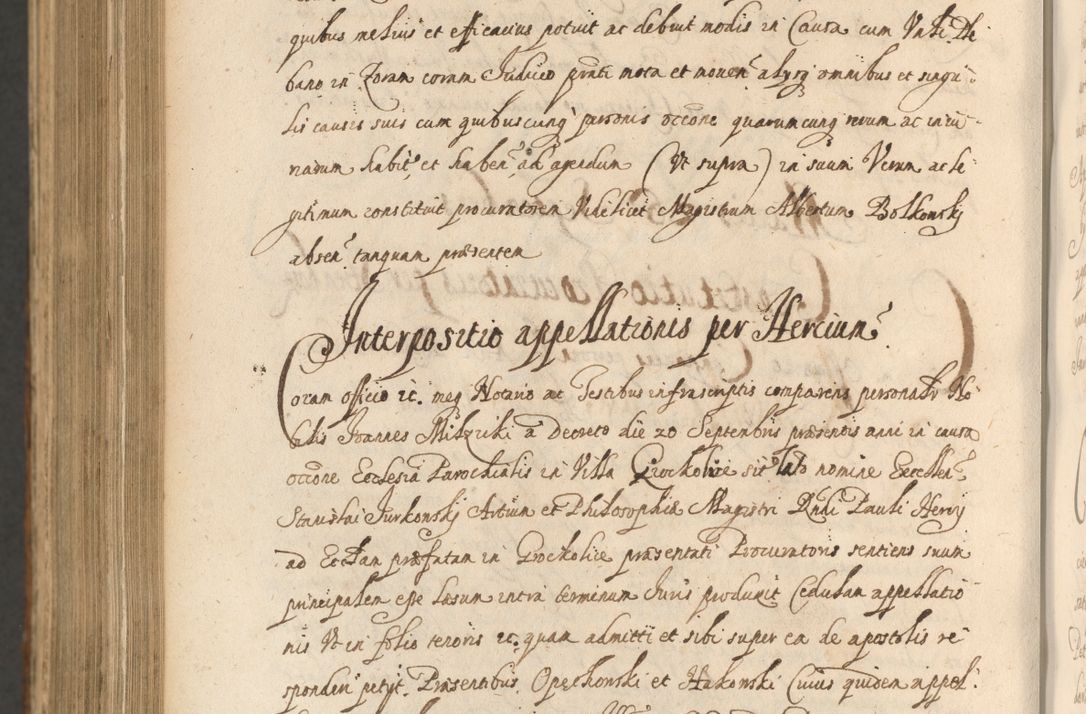 quibus melius et efficacius potuit ac debuit modis in Causa cum Vnli: Ple
bano in Zoram coram Iudicio prnti mota et mouen: alysq omnibus et singu
lis causis suis cum quibuscunq personis occone quarumcunq rerum ac iniu-
riarum habit: et haben: ad agendum (Vt supra) in suum Verum ac le
gitimum constituit procuratorem Videlicet Magistrum Albertum Bolkonskj
absen: tanquam præsentem
Interpositio appellationis per Hercium
Coram officio rc. meq Notario ac Testibus infrascriptis comparens personalr No
bilis Joannes Milzicki a Decreto die 20 Septembris præsentis anni in causa
occone Ecclesiæ Parochialis in Villa Grocholice sit lato nomine Excellen:
Stanislai Jurkonskj Artium et Philosophiæ Magistri Rndi Pauli Hercÿ
ad Ecclan præfatam in Grocholice præsentati Procuratoris sentiens suum
principalem esse læsum intra terminum Juris produxit Cedulam appellatio
nis Vt in folio tenoris rc. quam admitti et sibi super ea de apostolis re
sponderi petÿt. Præsentibus Opechonski et Hakonski Cuius quidem appel: